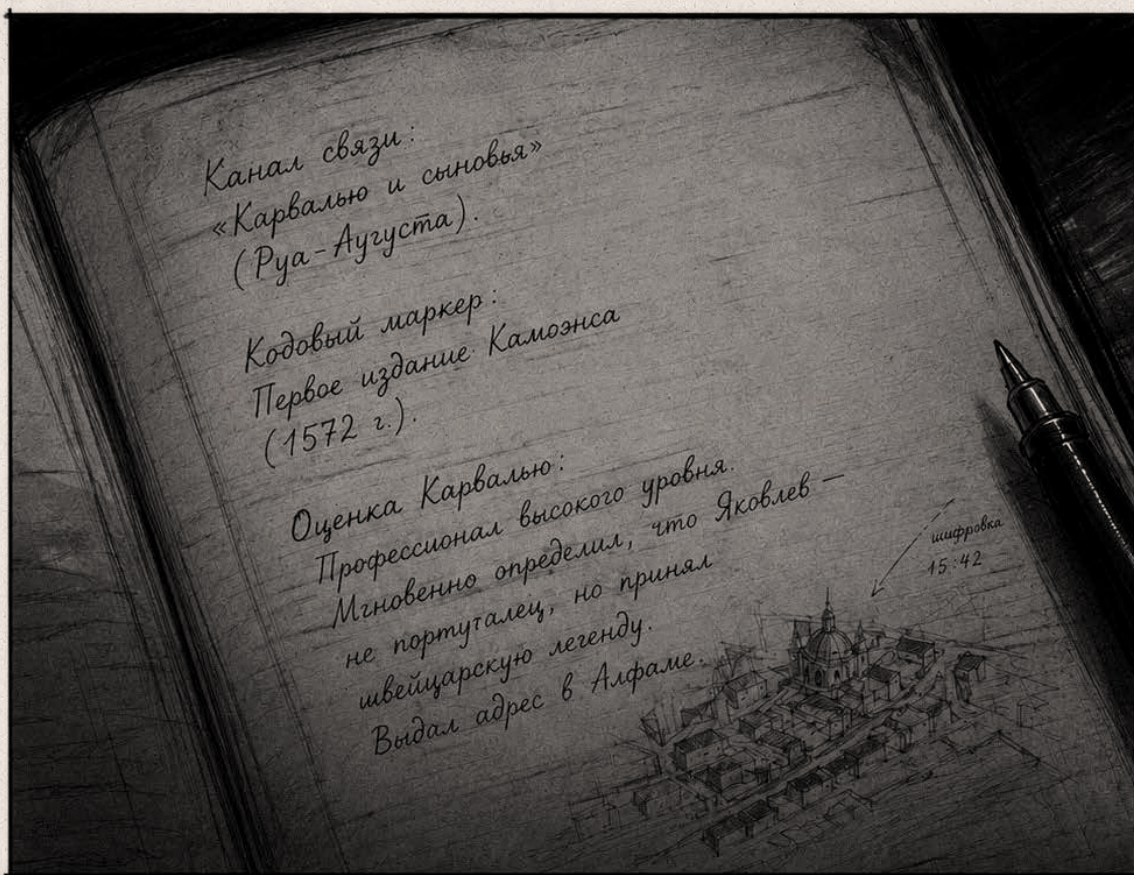 Канал связи:
«Карвалью и сыновья»
(Руа-Аугуста).
Кодовый маркер:
Первое издание Камоэнса
(1572 г.).
Оценка Карвалью:
Профессионал высокого уровня.
Мгновенно определил, что Яковлев —
не португалец, но принял
швейцарскую легенду.
Выдал адрес в Алфаме.
шифровка
15:42